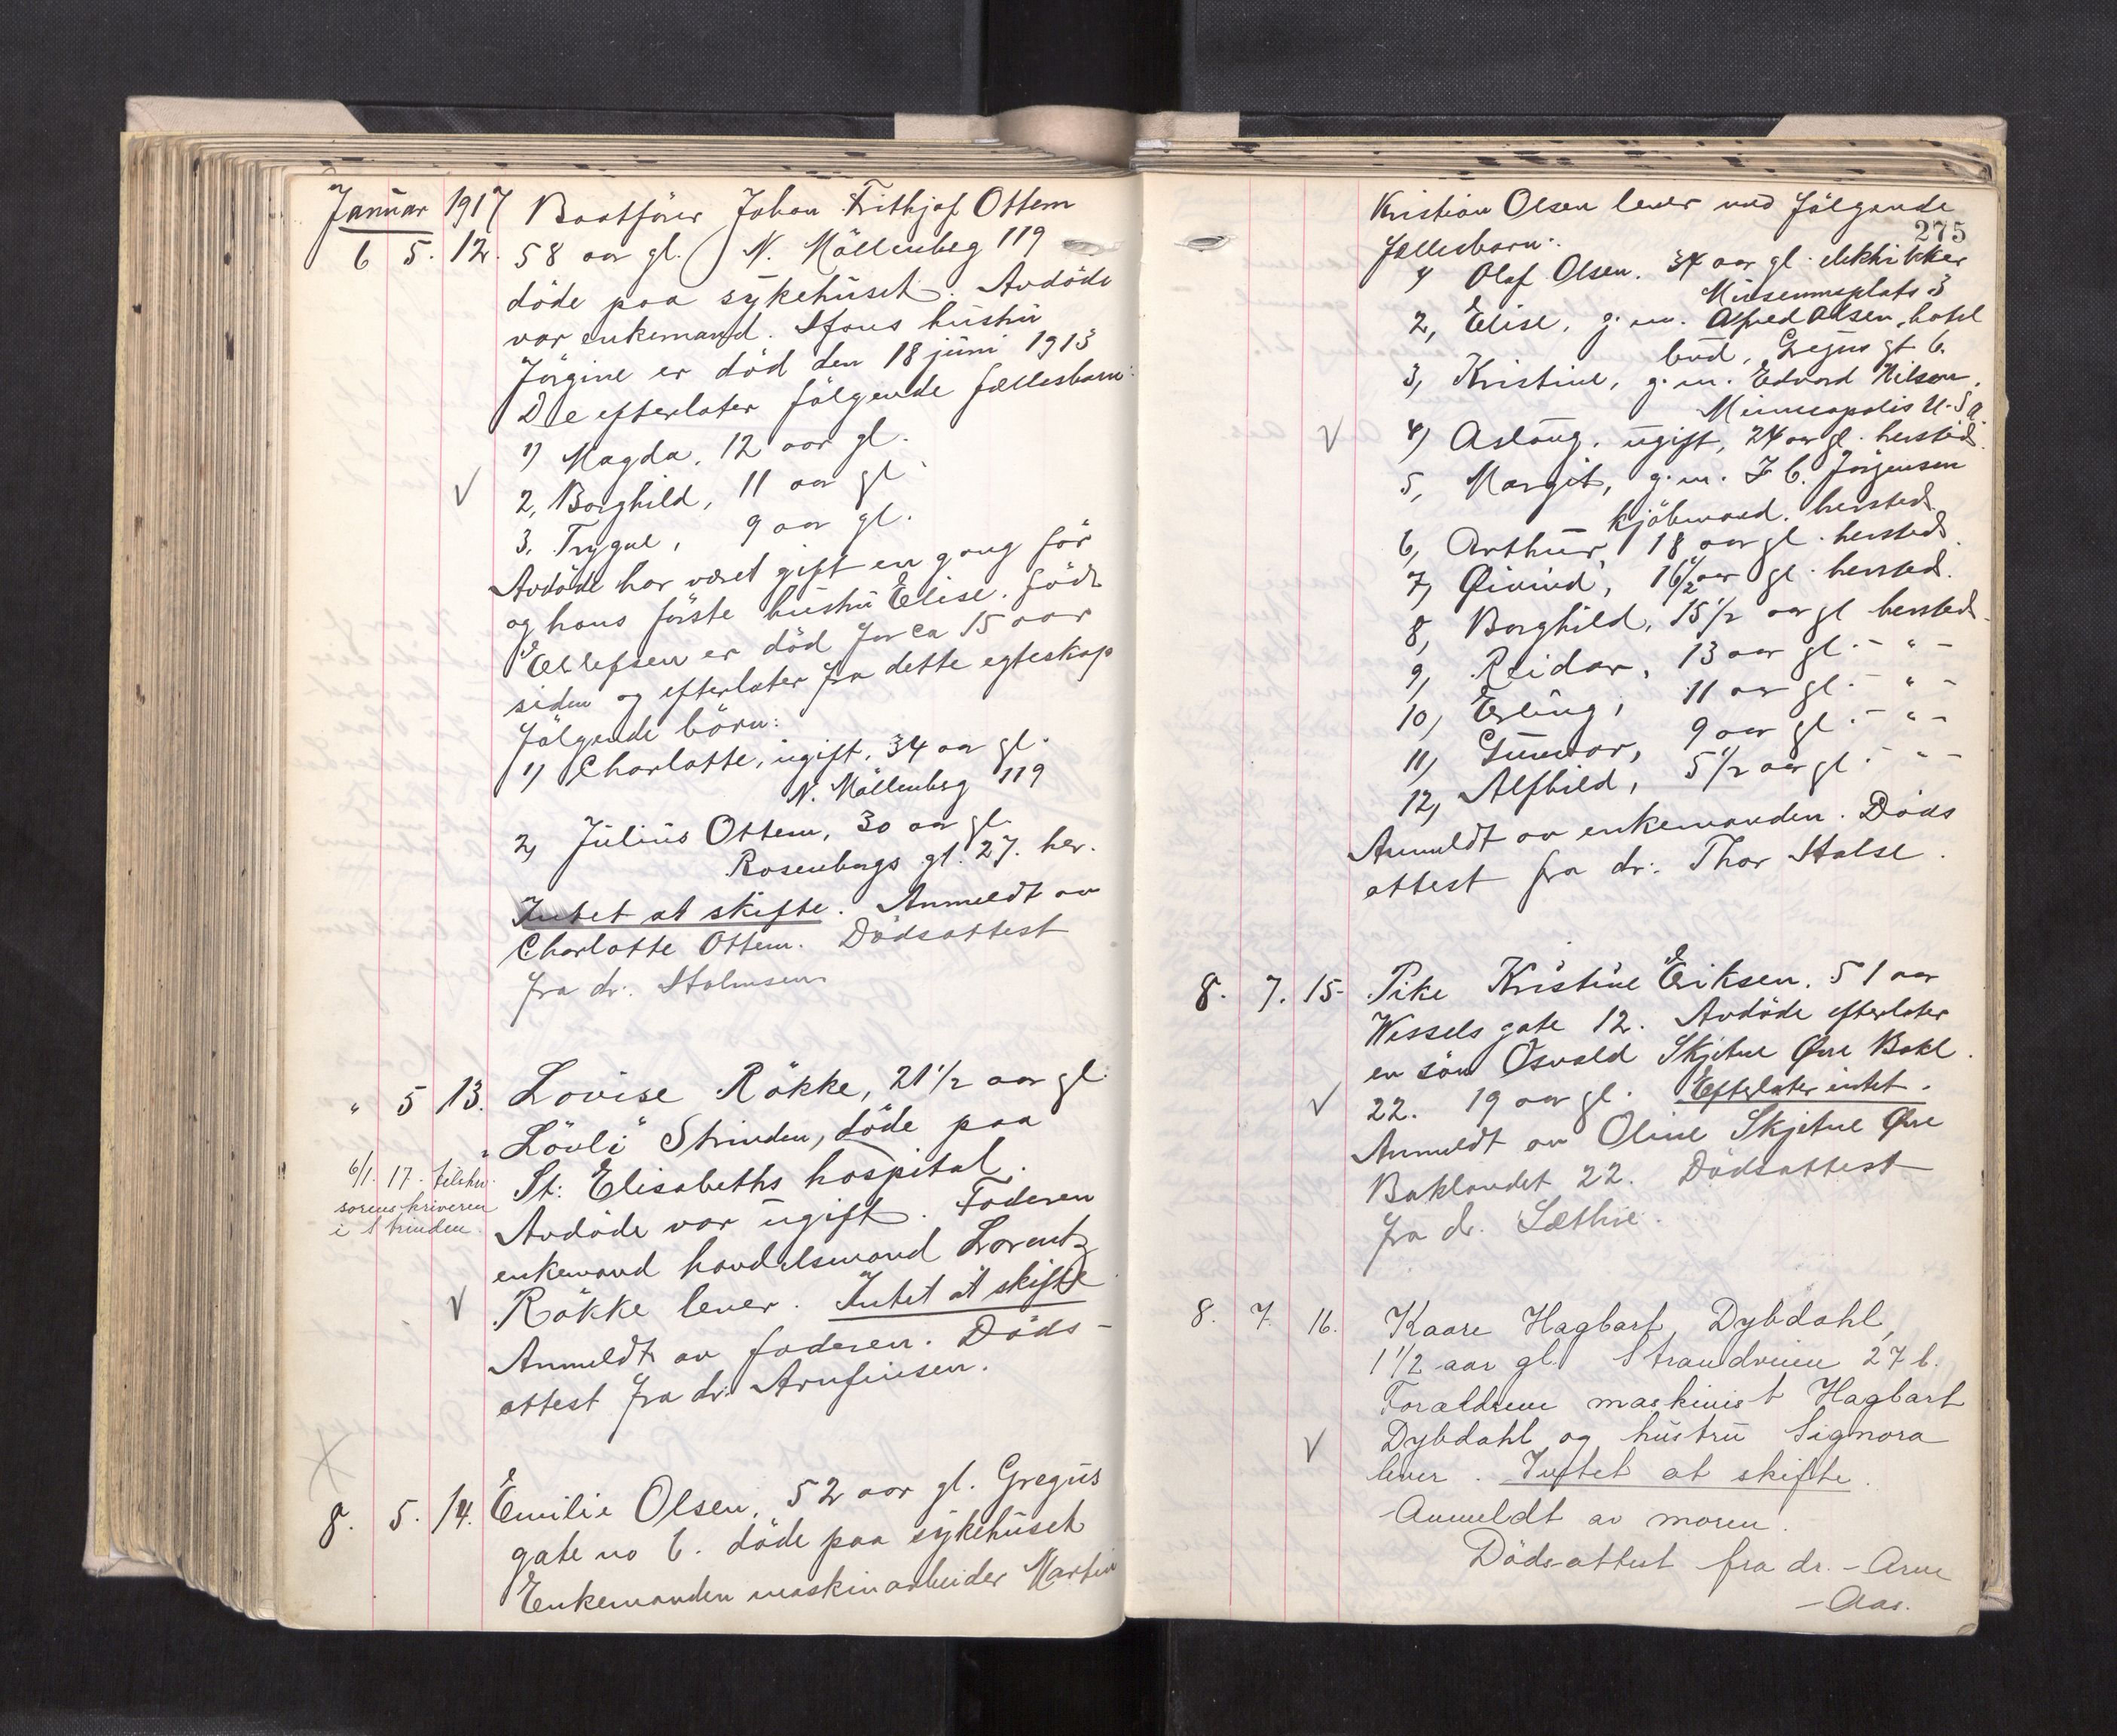 Januar 1917 Baatförer Johan Fritkjof Ottem
6 5. 12. 58 aar gl. N. Möllenbeg 119
döde paa sykehuset. Avdöde
var enkemand. Hans hustru
Jörgine er död den 18 juni 1913
De efterlater fölgende fællesbarn:
1) Magda, 12 aar gl.
2, Borghild, 11 aar gl
3, Trygve, 9 aar gl.
Avdöde har været gift en gang för
og hans förste hustru Elise, född
Ellefsen er död for ca 15 aar
siden og efterlater fra dette egteskap
fölgende börn:
1) Charlotte, ugift, 34 aar gl.
N. Möllenberg 119
2, Julius Ottem, 30 aar gl.
Rosenborgs gt. 27. her.
Intet at skifte. Anmeldt av
Charlotte Ottem. Dödsattest
fra dr. Holmsen
" 5 13. Lovise Rökke, 21 1/2 aar gl.
"Lövli" Strinden, döde paa
St: Elisabeths hospital.
6/1. 17. tilskr.
sorenskriveren
i Strinden.
Avdöde var ugift. Faderen
enkemand handelsmand Lorentz
Rökke lever. Intet at skifte
Anmeldt av faderen. Döds-
attest fra dr. Arnfinsen.
8. 5. 14. Emilie Olsen, 52 aar gl. Gregus
gate no 6. döde paa sykehuset
Enkemanden maskinarbeider Martin
275
Kristian Olsen lever med fölgende
fællesbarn:
1) Olaf Olsen. 34 aar gl. elektrikker
Museumsplats 3
2, Elise, g. m. Alfred Olsen, hotel
bud, Gregus gt 6.
3, Kristine, g. m. Edvard Nilsen,
Minneapolis U.S.A.
4) Aslaug, ugift, 24 aar gl. hersted.
5, Margit, g. m. J C. Jörgensen
kjöbmand. hersted.
6, Arthur, 18 aar gl. hersted.
7, Øivind, 16 1/2 aar gl. hersted.
8, Borghild, 15 1/2 aar gl hersted.
9, Reidar, 13 aar gl. - " -
10, Erling, 11 aar gl. - " -
11, Gunvor, 9 aar gl. - " -
12, Alfhild, 5 1/2 aar gl. - " -
Anmeldt av enkemanden. Döds
attest fra dr. Thor Halse.
8. 7. 15. Pike Kristine Eriksen. 51 aar
Wessels gate 12. Avdöde efterlater
en sön Osvald Skjetne Øvre Bakl.
22. 19 aar gl. Efterlater intet.
Anmeldt av Oline Skjetne Øvre
Baklandet 22. Dödsattest
fra dr. Sæthre.
8. 7. 16. Kaare Hagbart Dybdahl,
1 1/2 aar gl. Strandveien 27 b.
Forældrene maskinist Hagbart
Dybdahl og hustru Signora
lever. Intet at skifte.
Anmeldt av moren.
Dödsattest fra dr. Arne
Aas.